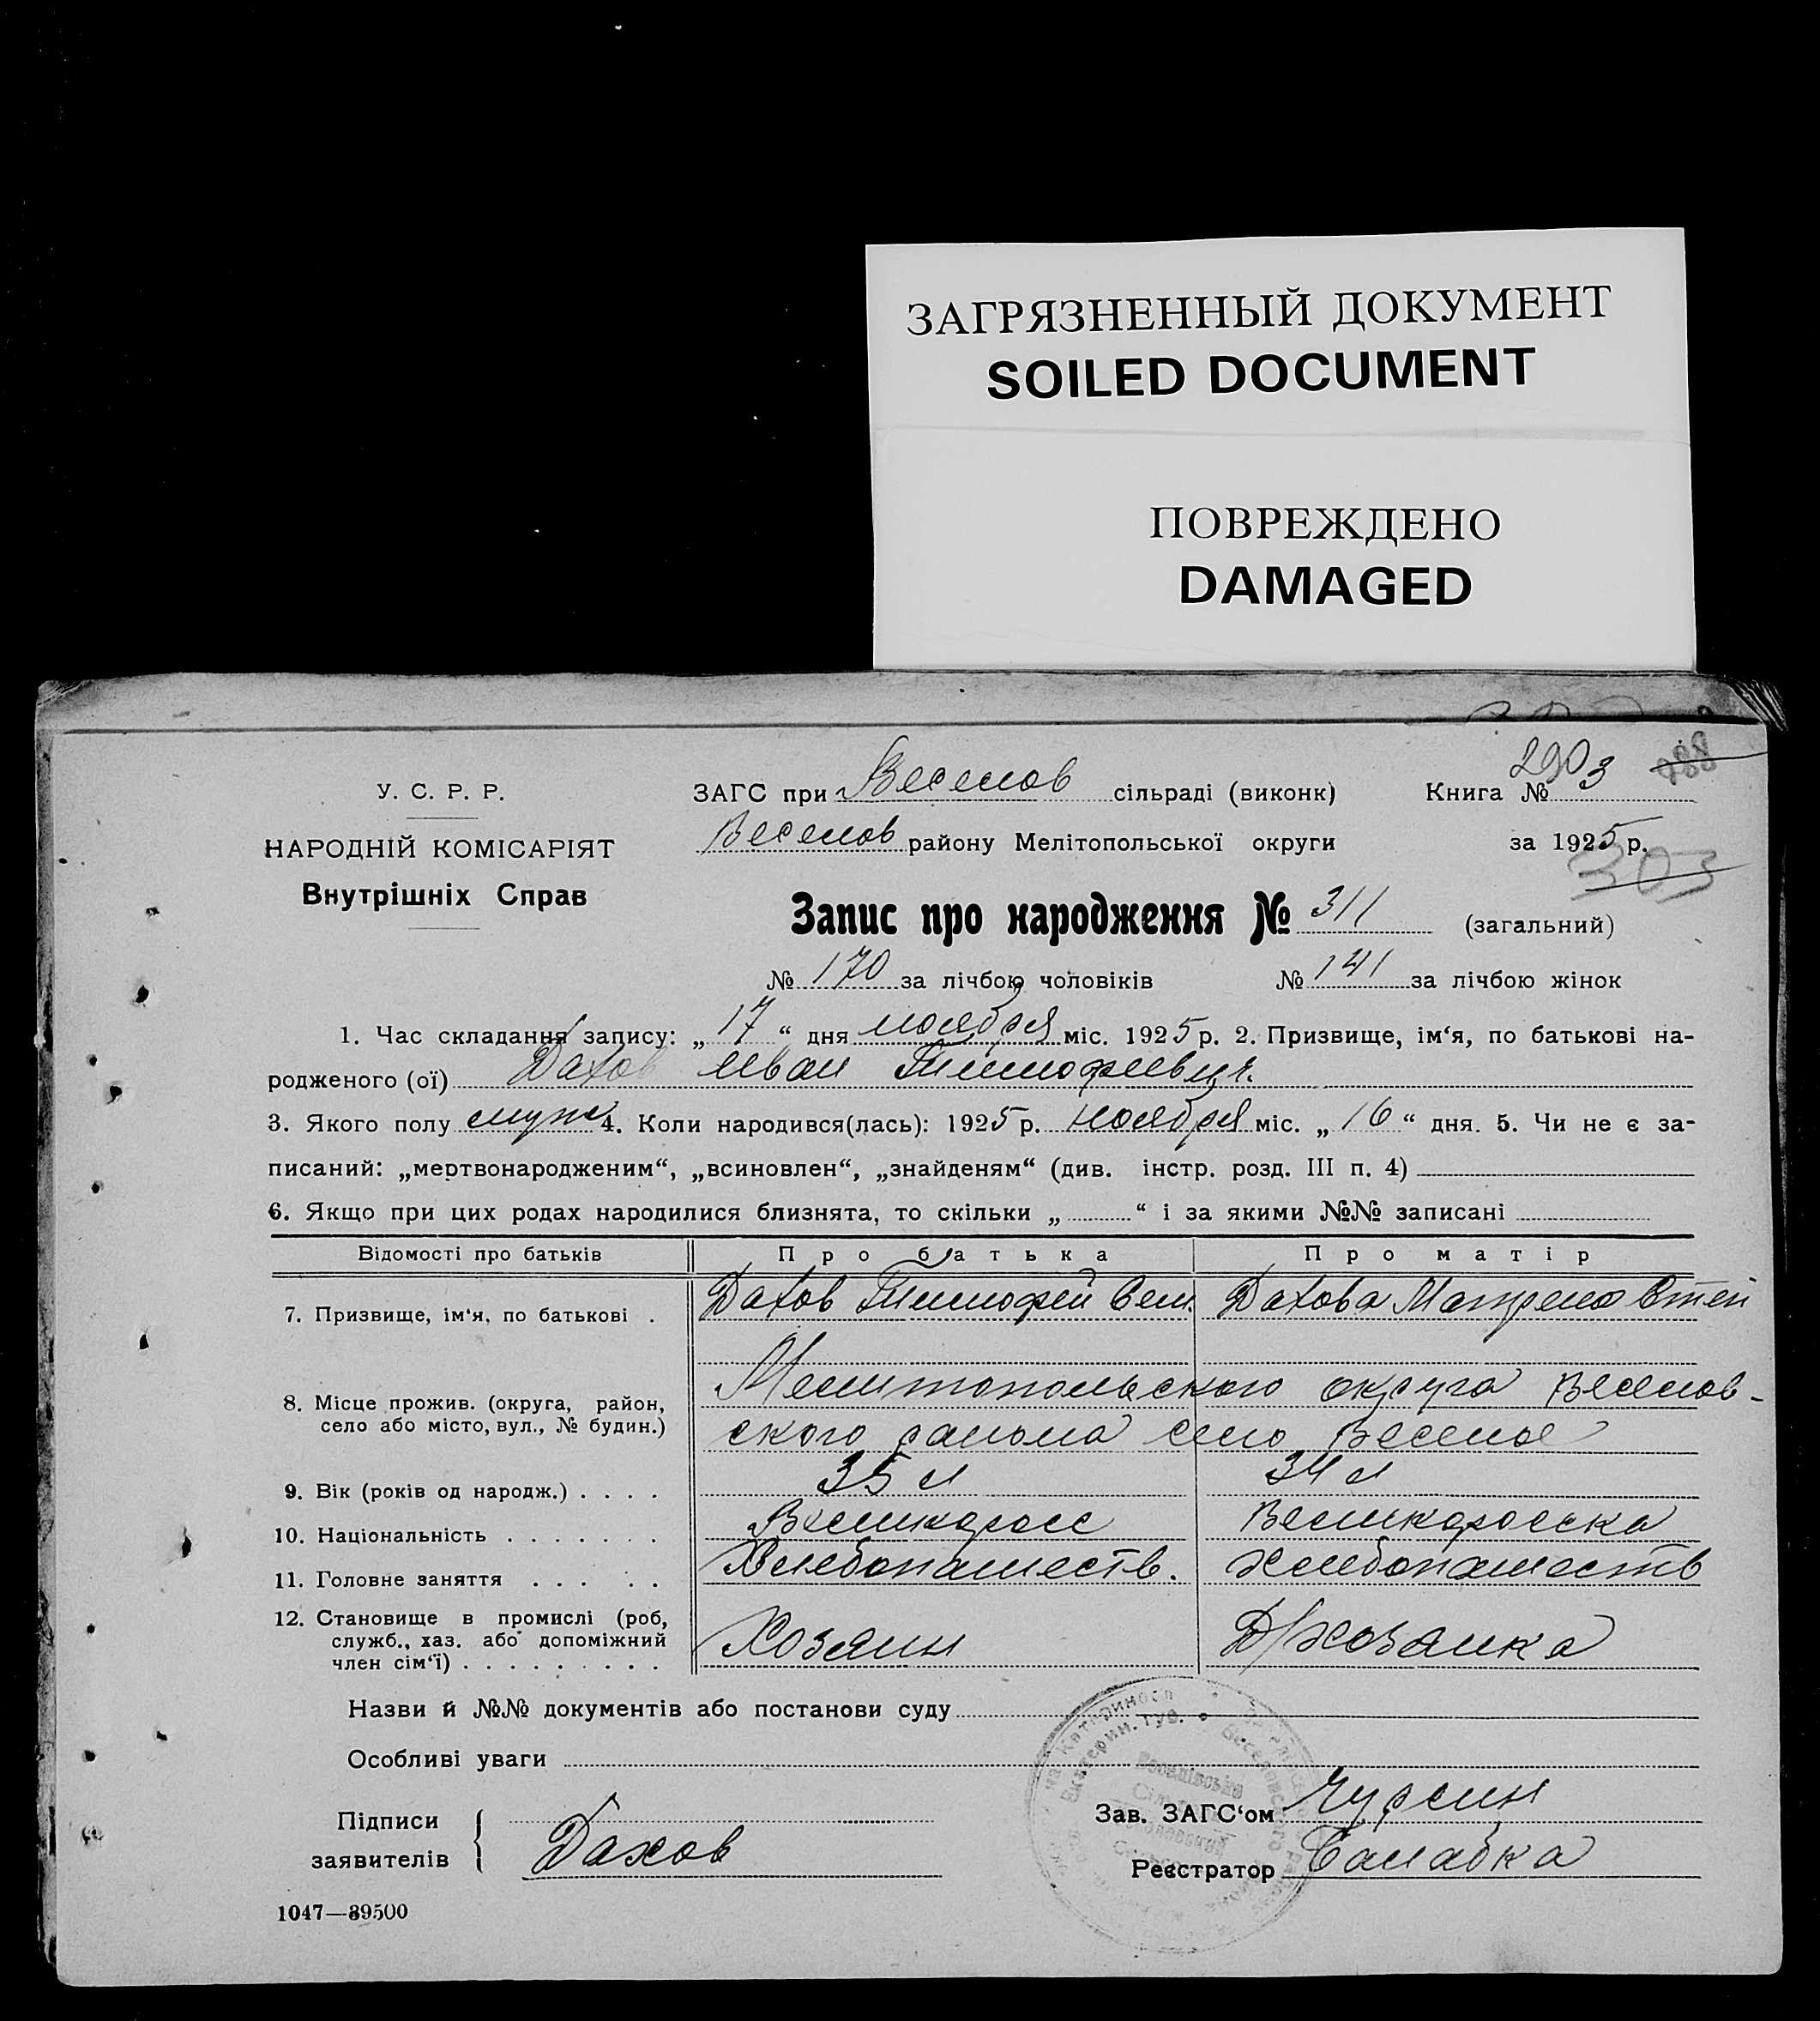 ЗАГРЯЗНЕННЫЙ ДОКУМЕНТ
SOILED DOCUMENT
ПОВРЕЖДЕНО
DAMAGED
290 288
У. С. Р. Р. ЗАГС при Веселов сільраді (виконк) Книга № 3
НАРОДНІЙ КОМІСАРІЯТ Веселов району Мелітопольської округи за 1925 р.
303
Внутрішніх Справ
Запис про народження № 311 (загальний)
№ 170 за лічбою чоловіків № 141 за лічбою жінок
1. Час складання запису: „ 17 “ дня ноября міс. 1925 р. 2. Призвище, ім‘я, по батькові на-
родженого (ої) Дахов Иван Тимофеевич
3. Якого полу муж 4. Коли народився(лась): 1925 р. ноября міс. „ 16 “ дня. 5. Чи не є за-
писаний: „мертвонародженим“, „всиновлен“, „знайденям“ (див. інстр. розд. III п. 4)
6. Якщо при цих родах народилися близнята, то скільки „ “ і за якими №№ записані
Відомості про батьків Про батька Про матір
7. Призвище, ім‘я, по батькові . Дахов Тимофей Дахова Матрена
8. Місце прожив. (округа, район, Мелитопольского округа Веселов-
село або місто, вул., № будин.) ского района село Веселое
9. Вік (років од народж.) . . . . 35 л 34 л
10. Національність . . . . . . . Великоросс Великоросска
11. Головне заняття . . . . . Хлебопашеств. хлебопашеств
12. Становище в промислі (роб,
служб., хаз. або допоміжний
член сім‘ї) . . . . . . . . . Хозяин Д/хозяйка
Назви й №№ документів або постанови суду
Особливі уваги
Підписи Зав. ЗАГС‘ом Чурсин
заявителів Дахов Реєстратор Балабка
1047—39500